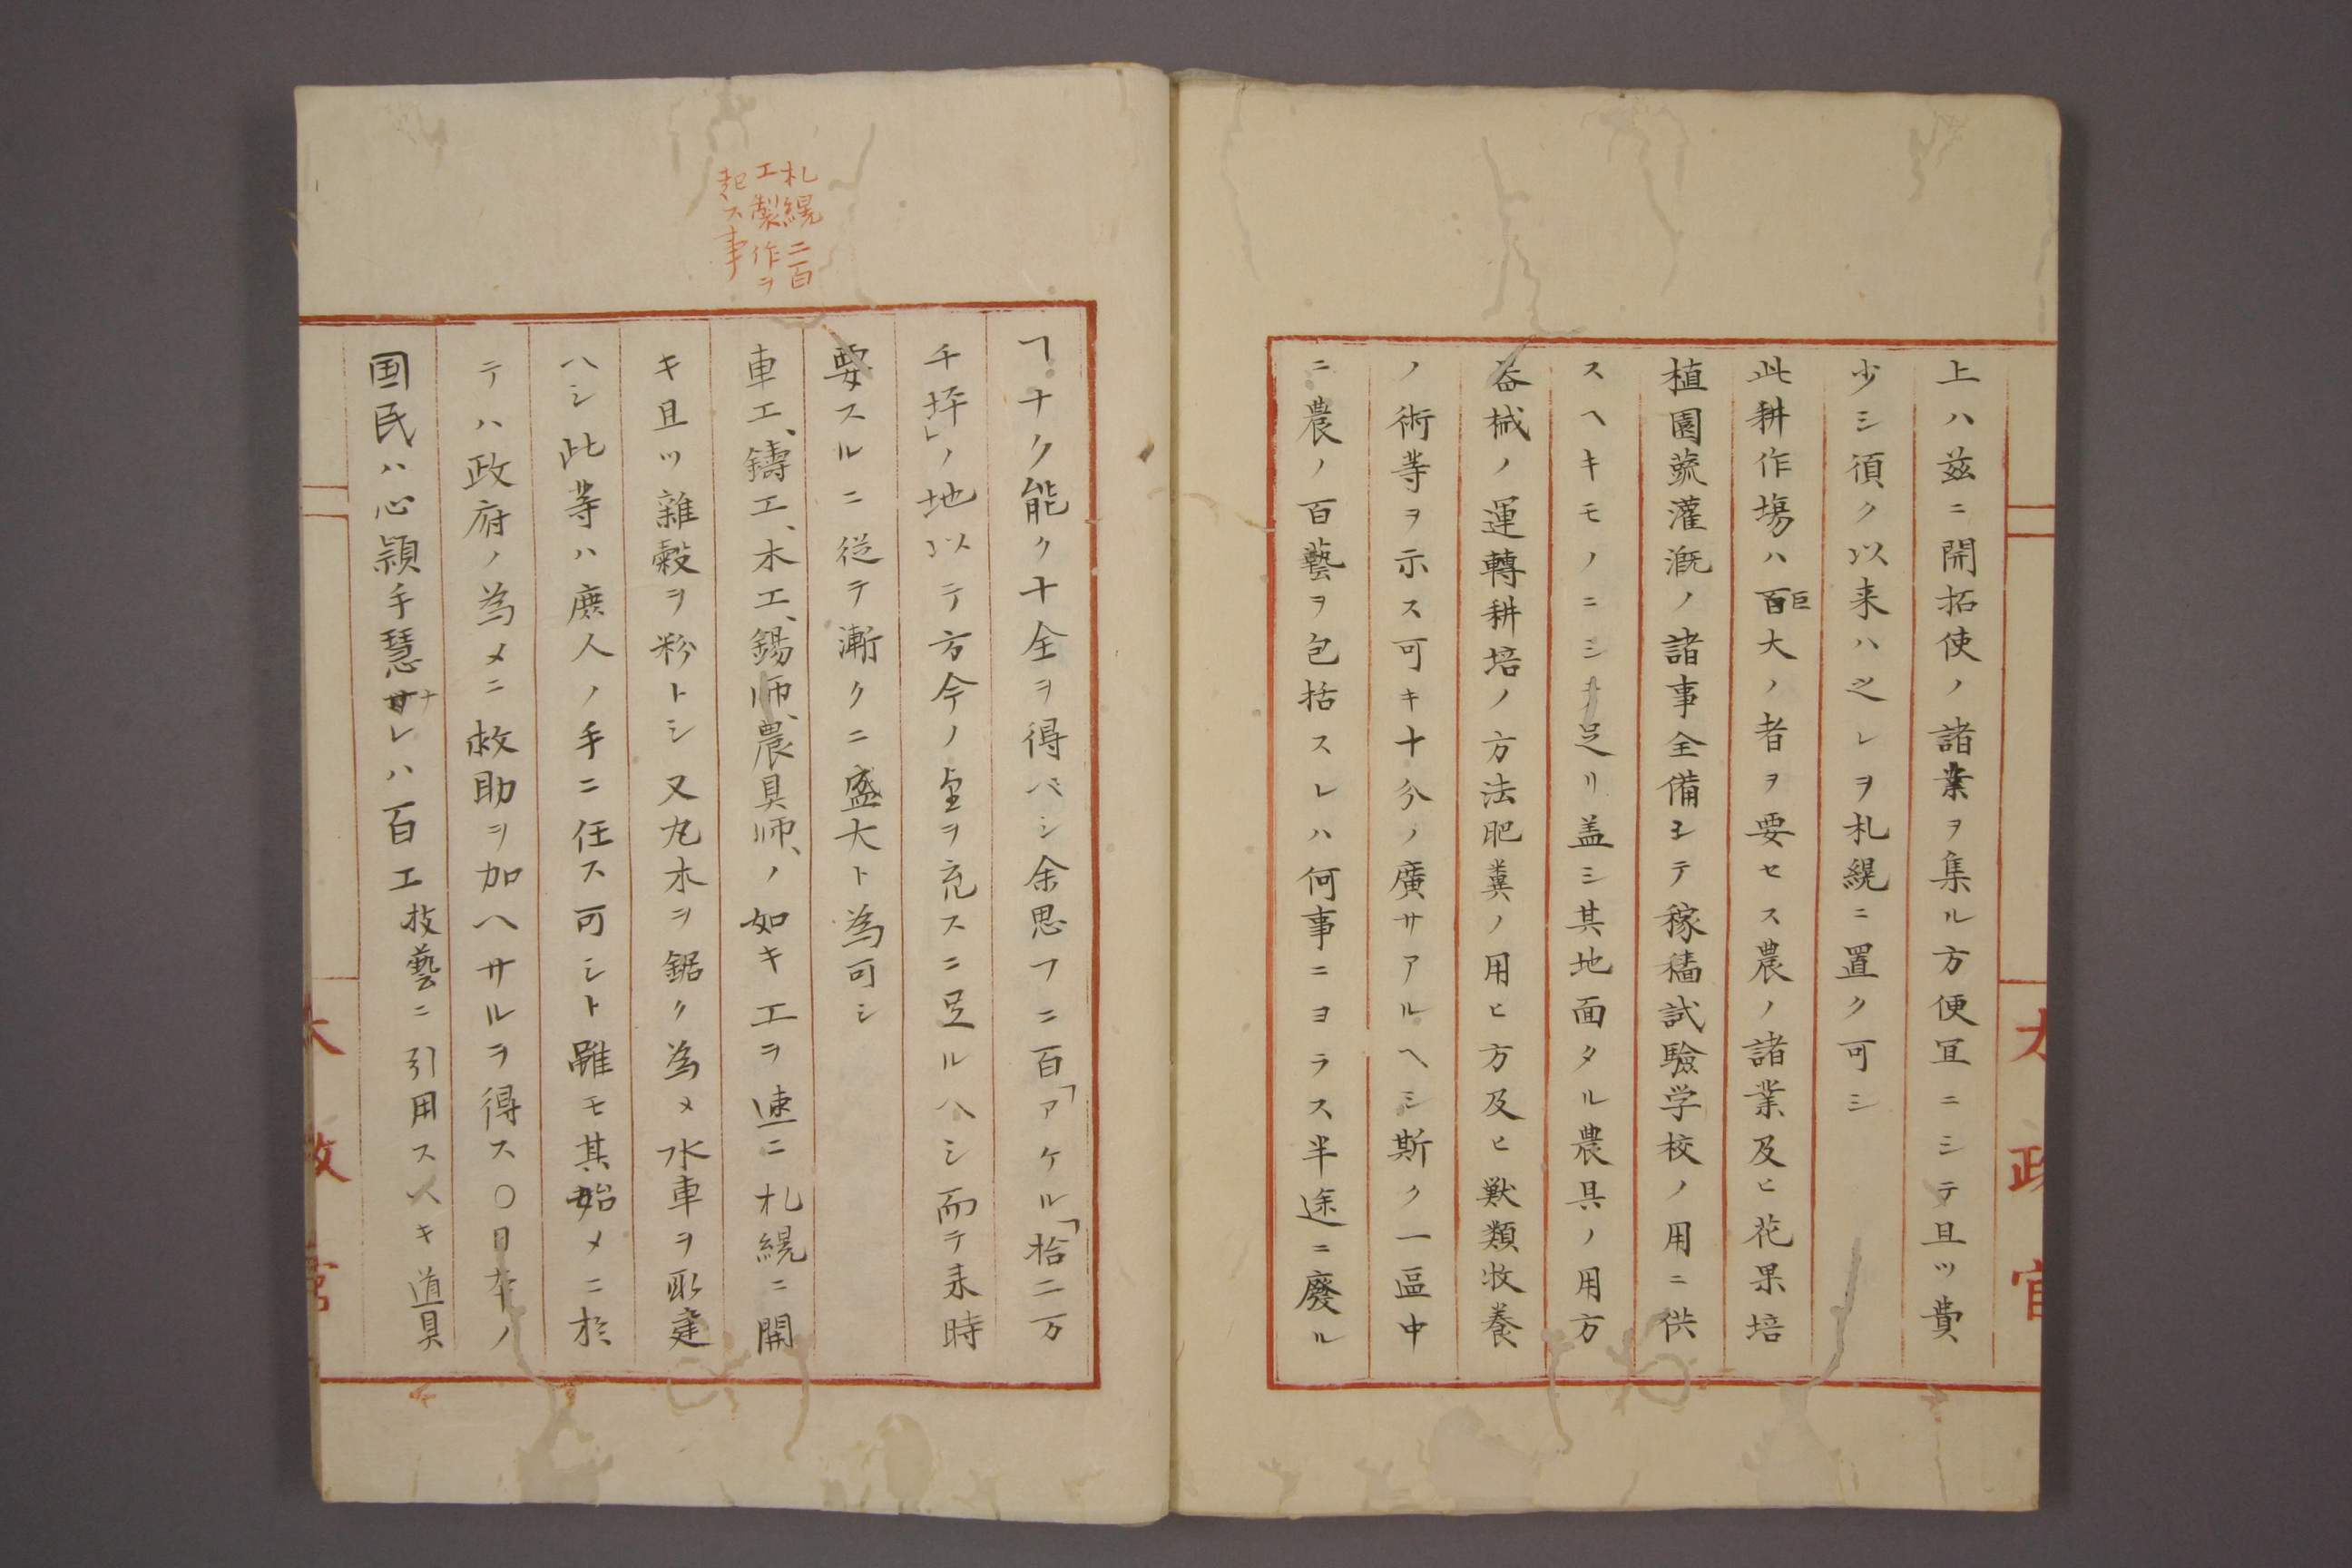 上ハ茲ニ開拓使ノ諸業ヲ集ル方便冝ニシテ且ツ費
少シ須ク以来ハ之レヲ札縨ニ置ク可シ
此耕作場ハ百巨大ノ者ヲ要セス農ノ諸業及ヒ花果培
植園蔬灌漑ノ諸事全備シテ稼穡試驗学校ノ用ニ供
スヘキモノニシテ足リ盖シ其地面タル農具ノ用方
噐械ノ運轉耕培ノ方法肥糞ノ用ヒ方及ヒ獣類牧養
ノ術等ヲ示ス可キ十分ノ廣サアルヘシ斯ク一區中
ニ農ノ百藝ヲ包括スレハ何事ニヨラス半途ニ廢ル
ヿナク能ク十全ヲ得ベシ余思フニ百「アケル「拾二万
千坪」ノ地以テ方今ノ望ヲ充スニ足ルヘシ而テ来時
要スルニ従テ漸クニ盛大ト為可シ
札縨ニ百
工製作ヲ
起ス事
車工、鑄工、木工、錫师、農具师、ノ如キ工ヲ速ニ札縨ニ開
キ且ツ雜穀ヲ粉トシ又丸木ヲ鋸ク為メ水車ヲ取建
ヘシ此等ハ庶人ノ手ニ任ス可シト雖モ其始メニ於
テハ政府ノ為メニ救助ヲ加ヘサルヲ得ス〇日本ノ
国民ハ心頴手慧ナサレハ百工技藝ニ引用スヘキ道具
太政官